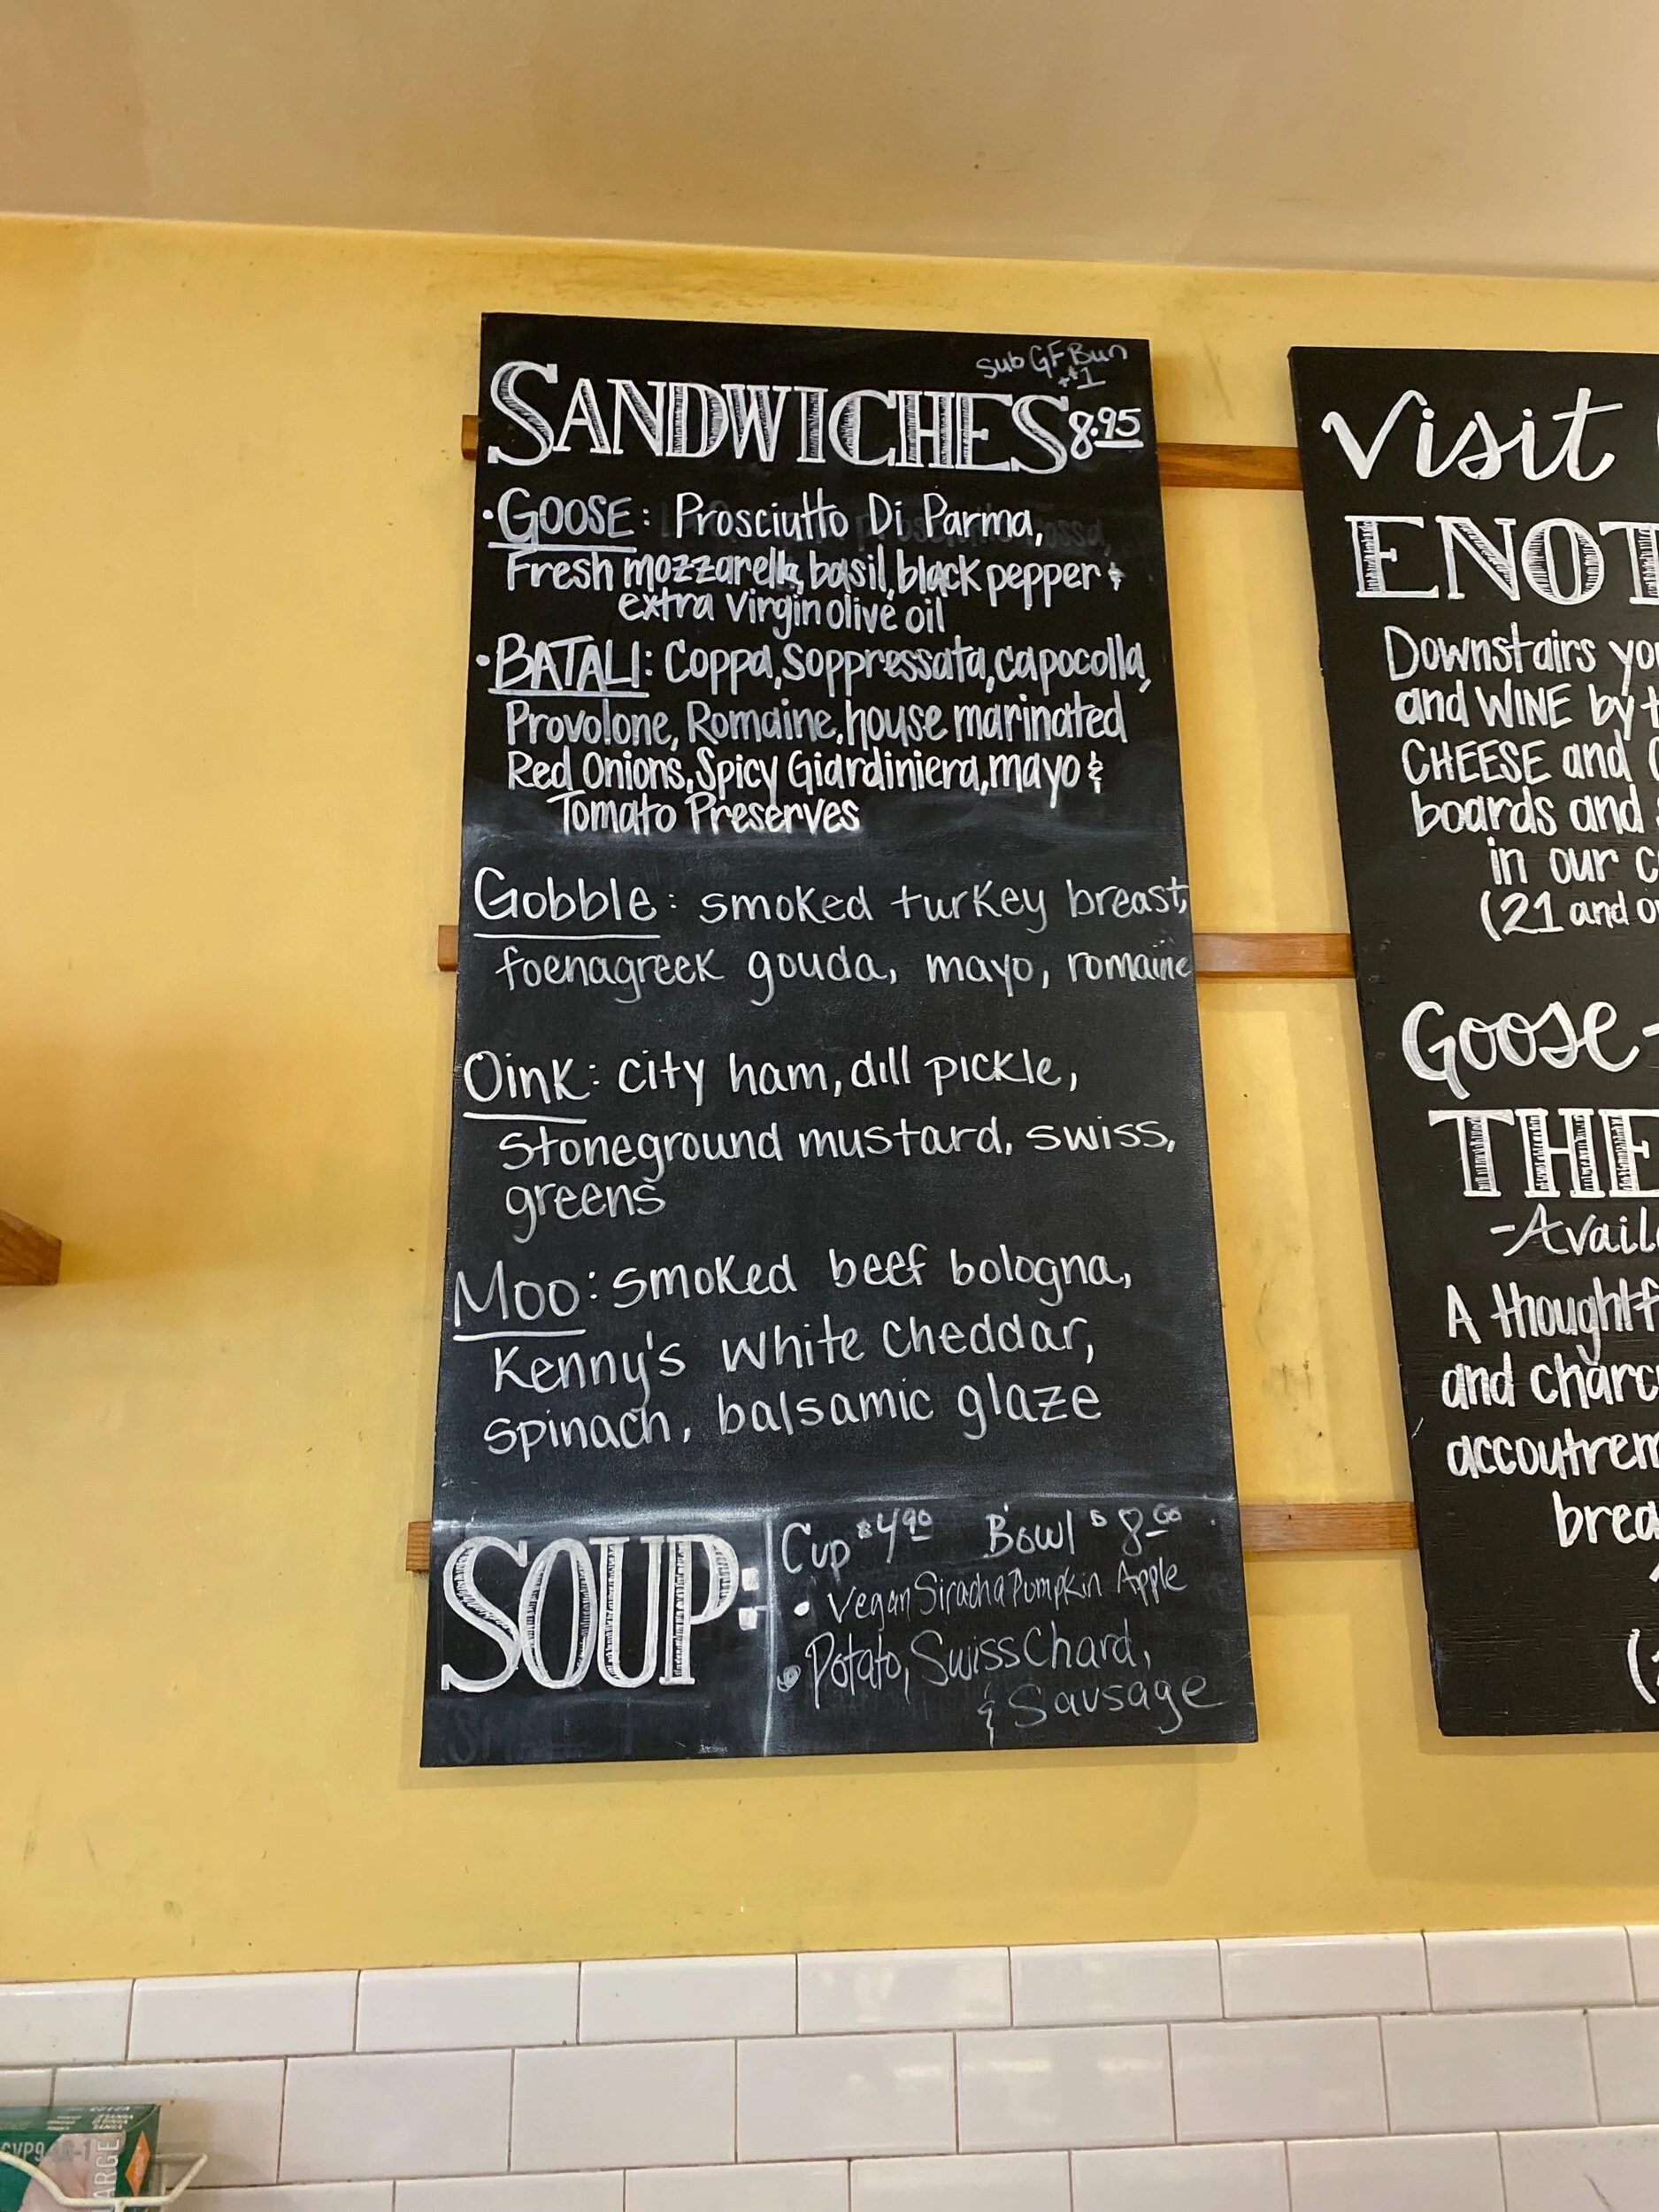 Sub GF Bun
+$1
SANDWICHES 8.95
• GOOSE: Prosciutto Di Parma,
Fresh mozzarella, basil, black pepper &
extra virgin olive oil
• BATALI: Coppa, Soppressata, capocolla,
Provolone, Romaine, house marinated
Red Onions, Spicy Giardiniera, mayo &
Tomato Preserves
Gobble: smoked turkey breast,
foenagreek gouda, mayo, romaine
Oink: city ham, dill pickle,
stoneground mustard, swiss,
greens
Moo: smoked beef bologna,
Kenny's White Cheddar,
spinach, balsamic glaze
SOUP:
Cup $4.90 Bowl $8.00
• Vegan Siracha Pumpkin Apple
• Potato, Swiss Chard,
& Sausage
Visit
ENOT
Downstairs yo
and WINE by t
CHEESE and C
boards and s
in our c
(21 and o
Goose-
THE
-Avail
A thoughtf
and charc
accoutrem
brea
LARGE